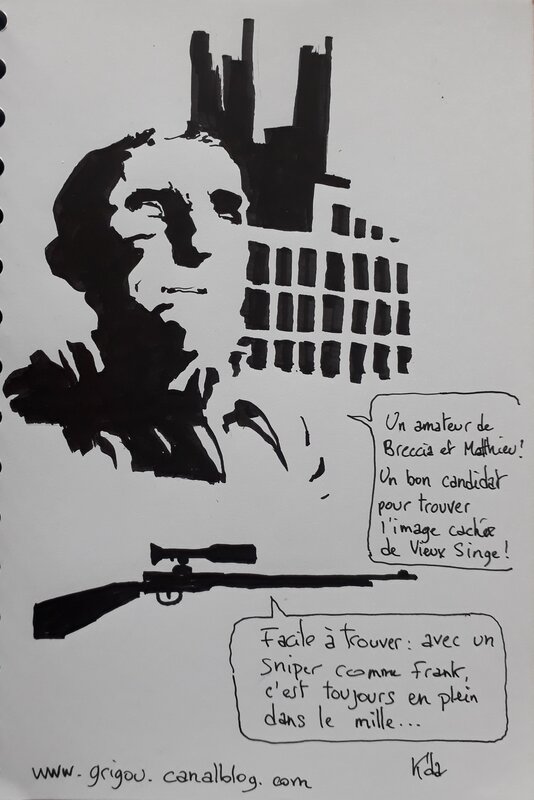 Un amateur de
Breccia et Matthieu?
Un bon candidat
pour trouver
l'image cachée
de Vieux Singe!
Facile à trouver: avec un
sniper comme Frank,
c'est toujours en plein
dans le mille...
www.grigou.canalblog.com